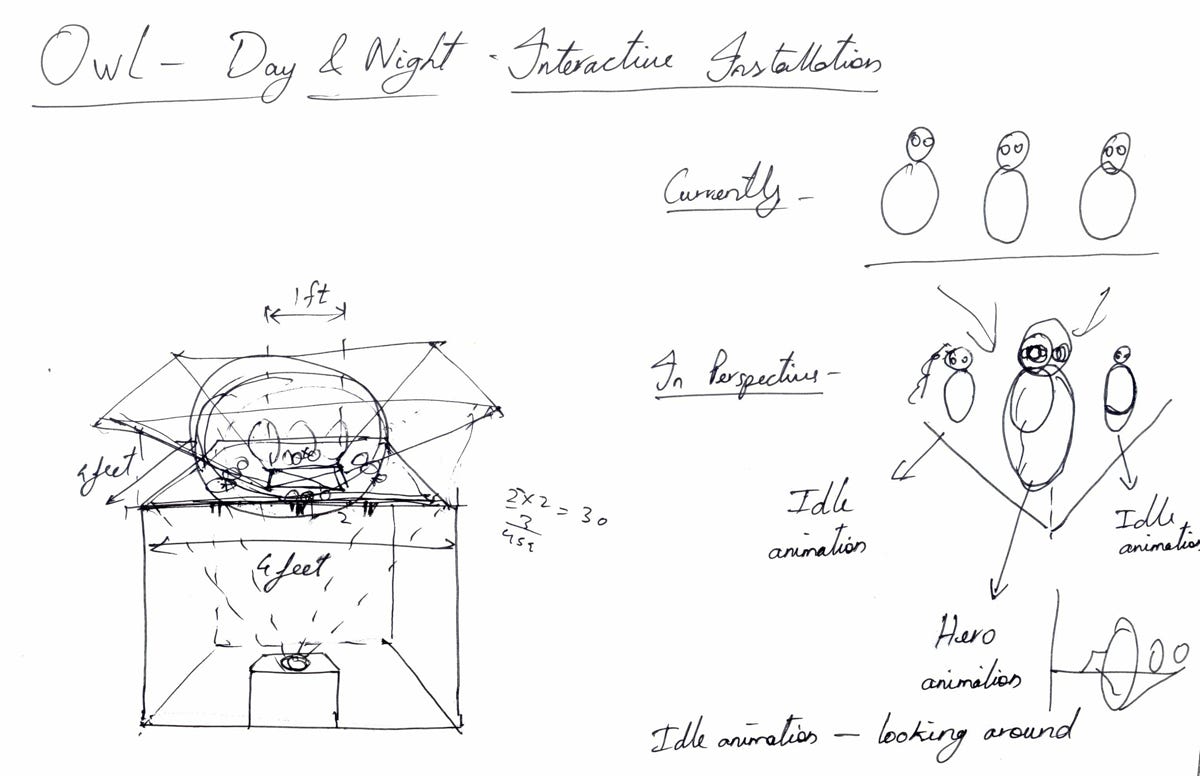 Owl - Day & Night - Interactive Installation
Currently -
1 ft
In Perspective -
4 feet
2
= 30
4 feet
Idle
animation
Idle
animation
Hero
animation
Idle animation — looking around